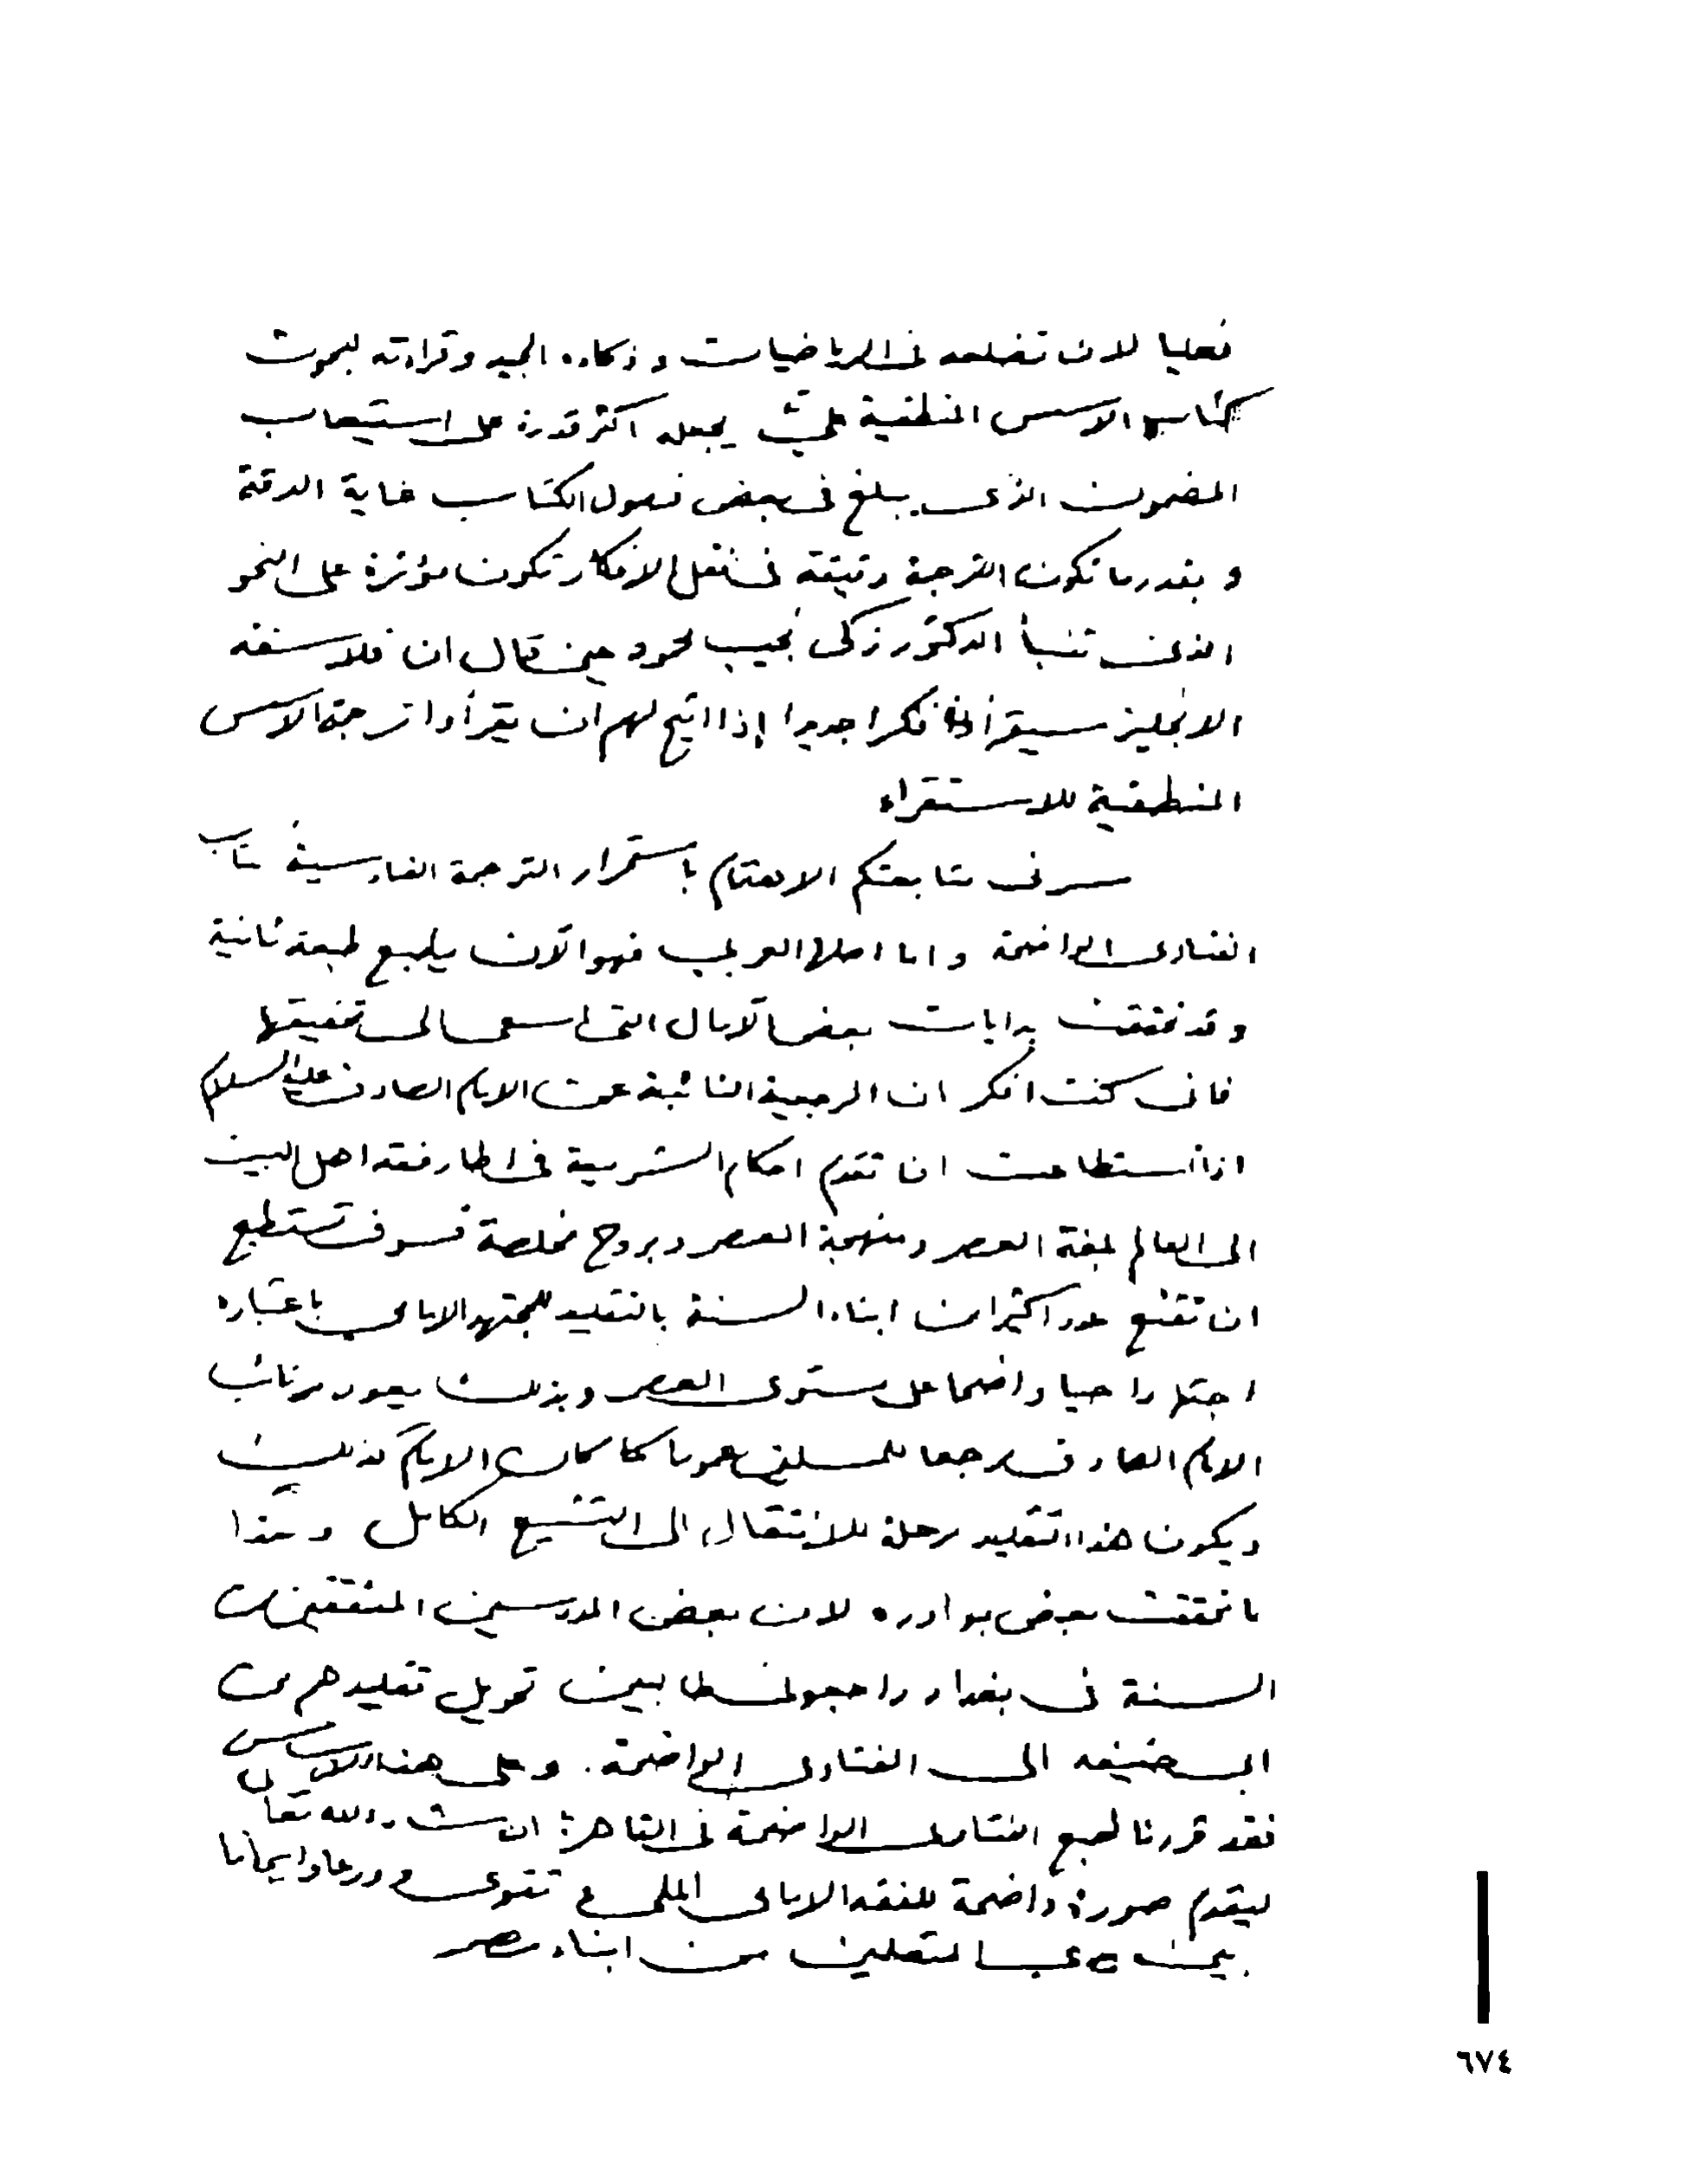 فعليا لان تضلعه فى الرياضيات و ذكاءه الجيد وقراءته لبحوث
كتاب الاسس المنطقية علي يجعله اكثر قدرة على استيعاب
المضمون الذى يبلغ فى بعض فصول الكتاب غاية الدقة
و بقدر ما تكون الترجمة دقيقة فى نقل الافكار تكون مؤثرة على النحو
الذى تنبأ الدكتور زكى نجيب محمود حين قال ان فلاسفه
الانجليز سيقرأون فكرا جديدا إذا اتيح لهم ان يقرأوا ترجمة الاسس
المنطقية للاستقراء
سرنى متابعتكم الاهتمام باستمرار الترجمة الفارسية
الفتاوى الواضحة و اما اصلها العربي فهو الآن يطبع طبعة ثانية
و قد تحققت بدايات بعض الآمال التى اسعى الى تحقيقها
فانى كنت افكر ان المرجعية النائبة عن الامام الصادق عليه السلام
اذا استطاعت ان تقدم احكام الشريعة فى اطار فقه اهل البيت
الى العالم بلغة العصر و منهجية العصر و بروح مخلصة فسوف تستطيع
ان تقنع عددا كثيرا من ابناء السنة بالتقليد للمجتهد الامامي باعتباره
اجتهادا حيا واضحا على مستوى العصر وبذلك يعود نائب
الامام الصادق مرجعا للمسلمين عموما كما كان الامام كذلك
ويكون هذا التقليد مرحلة للانتقال الى التشيع الكامل وهذا
ما تحققت بعض بوادره لان بعض المدرسين المثقفين من
السنة فى بغداد راجعونا طالبين تحويل تقليدهم من
ابي حنيفه الى الفتاوى الواضحة. وعلى هذا الاساس
فقد قررنا طبع الفتاوى الواضحة فى القاهرة ان شاء الله تعالى
ليقدم صورة واضحة للفقه الامامى تقوى و ورعا وايمانا
بين المتعلمين من ابناء مصر
٦٧٤